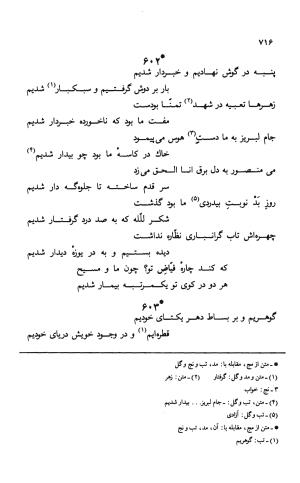 ۷۱۶
*۶۰۲
پنبه در گوش نهادیم و خبردار شدیم
بار بر دوش گرفتیم و سبکبار(۱) شدیم
زهرها تعبیه در شهد(۲) تمنّا بودست
مفت ما بود که ناخورده خبردار شدیم
جام لبریز به ما دستِ(۳) هوس می‌پیمود
خاك در کاسهٔ ما بود چو بیدار شدیم(۴)
می منصور به دل برق انا الحق می‌زد
سر قدم ساخته تا جلوه‌گه دار شدیم
روزِ بَدْ نوبتِ بیدردی(۵) ما بود گذشت
شکر لِلّه که به صد درد گرفتار شدیم
چهره‌اش تاب گرانباری نظّاره نداشت
دیده بستیم و به در یوزهٔ دیدار شدیم
که کند چارهٔ فیّاضِ تو؟ چون ما و مسیح
هر دو در کوی تو یکمرتبه بیمار شدیم
*۶۰۳
گوهریم و بر بساط دهر یکتای خودیم
قطره‌ایم(۱) و در وجود خویش دریای خودیم
* ـ متن از مج، مقابله با: مد، تب و نج وگل
(۱)ـ متن و مد وگل: گرفتار (۲)ـ متن: زهر
۳ـ نج: خواب
(۴)ـ متن، تب وگل: ـ جام لبریز... بیدار شدیم
(۵)ـ تب وگل: آزادی
* ـ متن از مج، مقابله با: آن، مد، تب و نج
(۱)ـ تب: گوهریم